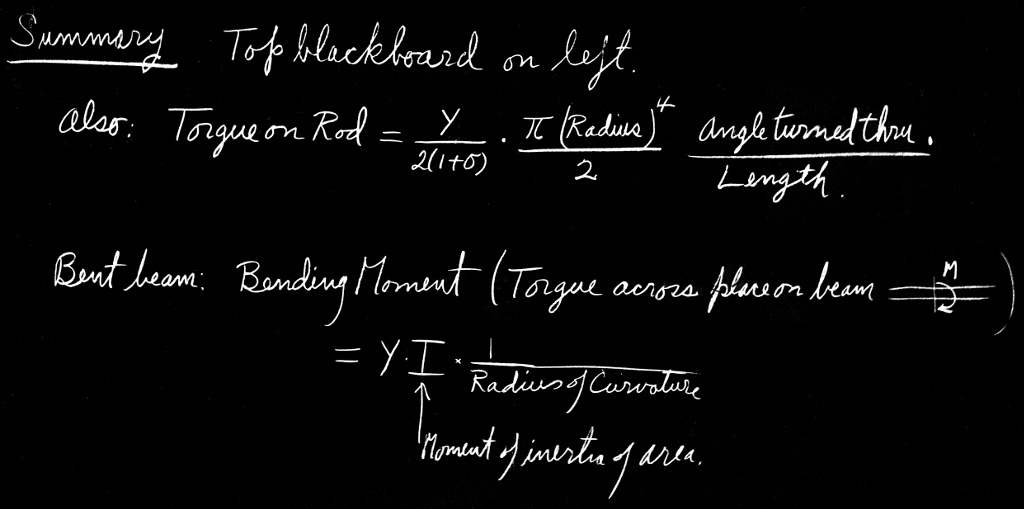 Summary Top blackboard on left.
also: Torque on Rod = Y/2(1+σ) · π (Radius)⁴/2 angle turned thru./Length.
Bent beam: Bending Moment (Torque across place on beam M)
= Y·I · 1/Radius of Curvature
Moment of inertia of area.